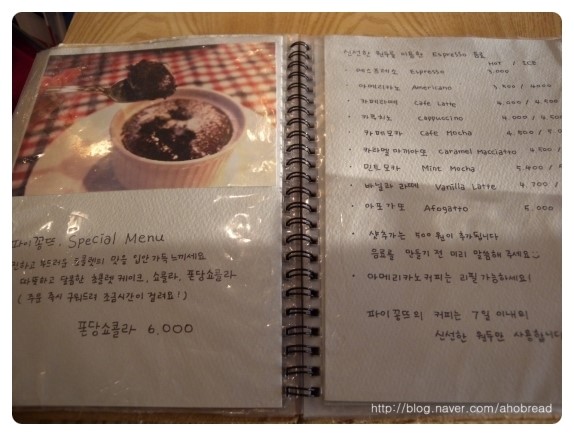 파이꽁뜨. Special Menu
진하고 부드러운 쇼콜렛의 맛을 입안가득 느끼세요
따뜻하고 달콤한 초콜렛 케이크, 쇼콜라, 퐁당쇼콜라
( 주문 즉시 구워드려 조금시간이 걸려요! )
퐁당쇼콜라 6,000
신선한 원두를 이용한 Espresso 음료
HOT / ICE
· 에스프레소 Espresso 3,000
· 아메리카노 Americano 3,500 / 4,000
· 카페라떼 Cafe Latte 4,000 / 4,500
· 카푸치노 Cappuccino 4,000 / 4,500
· 카페모카 Cafe Mocha 4,500 / 5,0
· 카라멜 마끼아또 Caramel Macciatto 4,500 /
· 민트 모카 Mint Mocha 5,400 /
· 바닐라 라떼 Vanilla Latte 4,700 /
· 아포가또 Afogatto 5,000
· 샷추가는 500원이 추가됩니다
음료를 만들기 전 미리 말씀해 주세요
· 아메리카노커피는 리필 가능하세요!
파이꽁뜨의 커피는 7일 이내의
신선한 원두만 사용합니다
http://blog.naver.com/ahobread